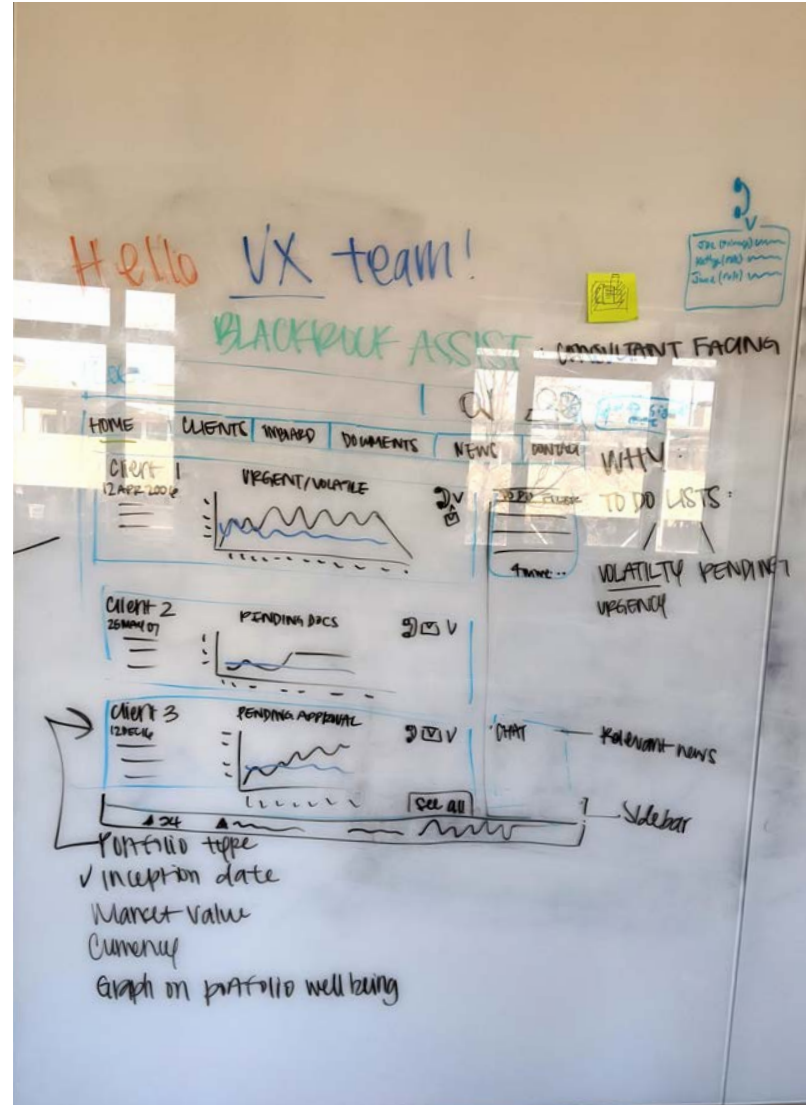 Hello UX team!
BLACKROCK ASSIST : CONSULTANT FACING
HOME CLIENTS DOCUMENTS NEWS CONTACT
WHY:
Client 1
12 APR 2006
URGENT/VOLATILE
TO DO
TO DO LISTS:
4 more...
VOLATILTY PENDING
URGENCY
Client 2
25 MAY 07
PENDING DOCS
Client 3
12 DEC 16
PENDING APPROVAL
CHAT
Relevant news
See all
Sidebar
Portfolio type
✓ inception date
Market value
Currency
Graph on portfolio well being